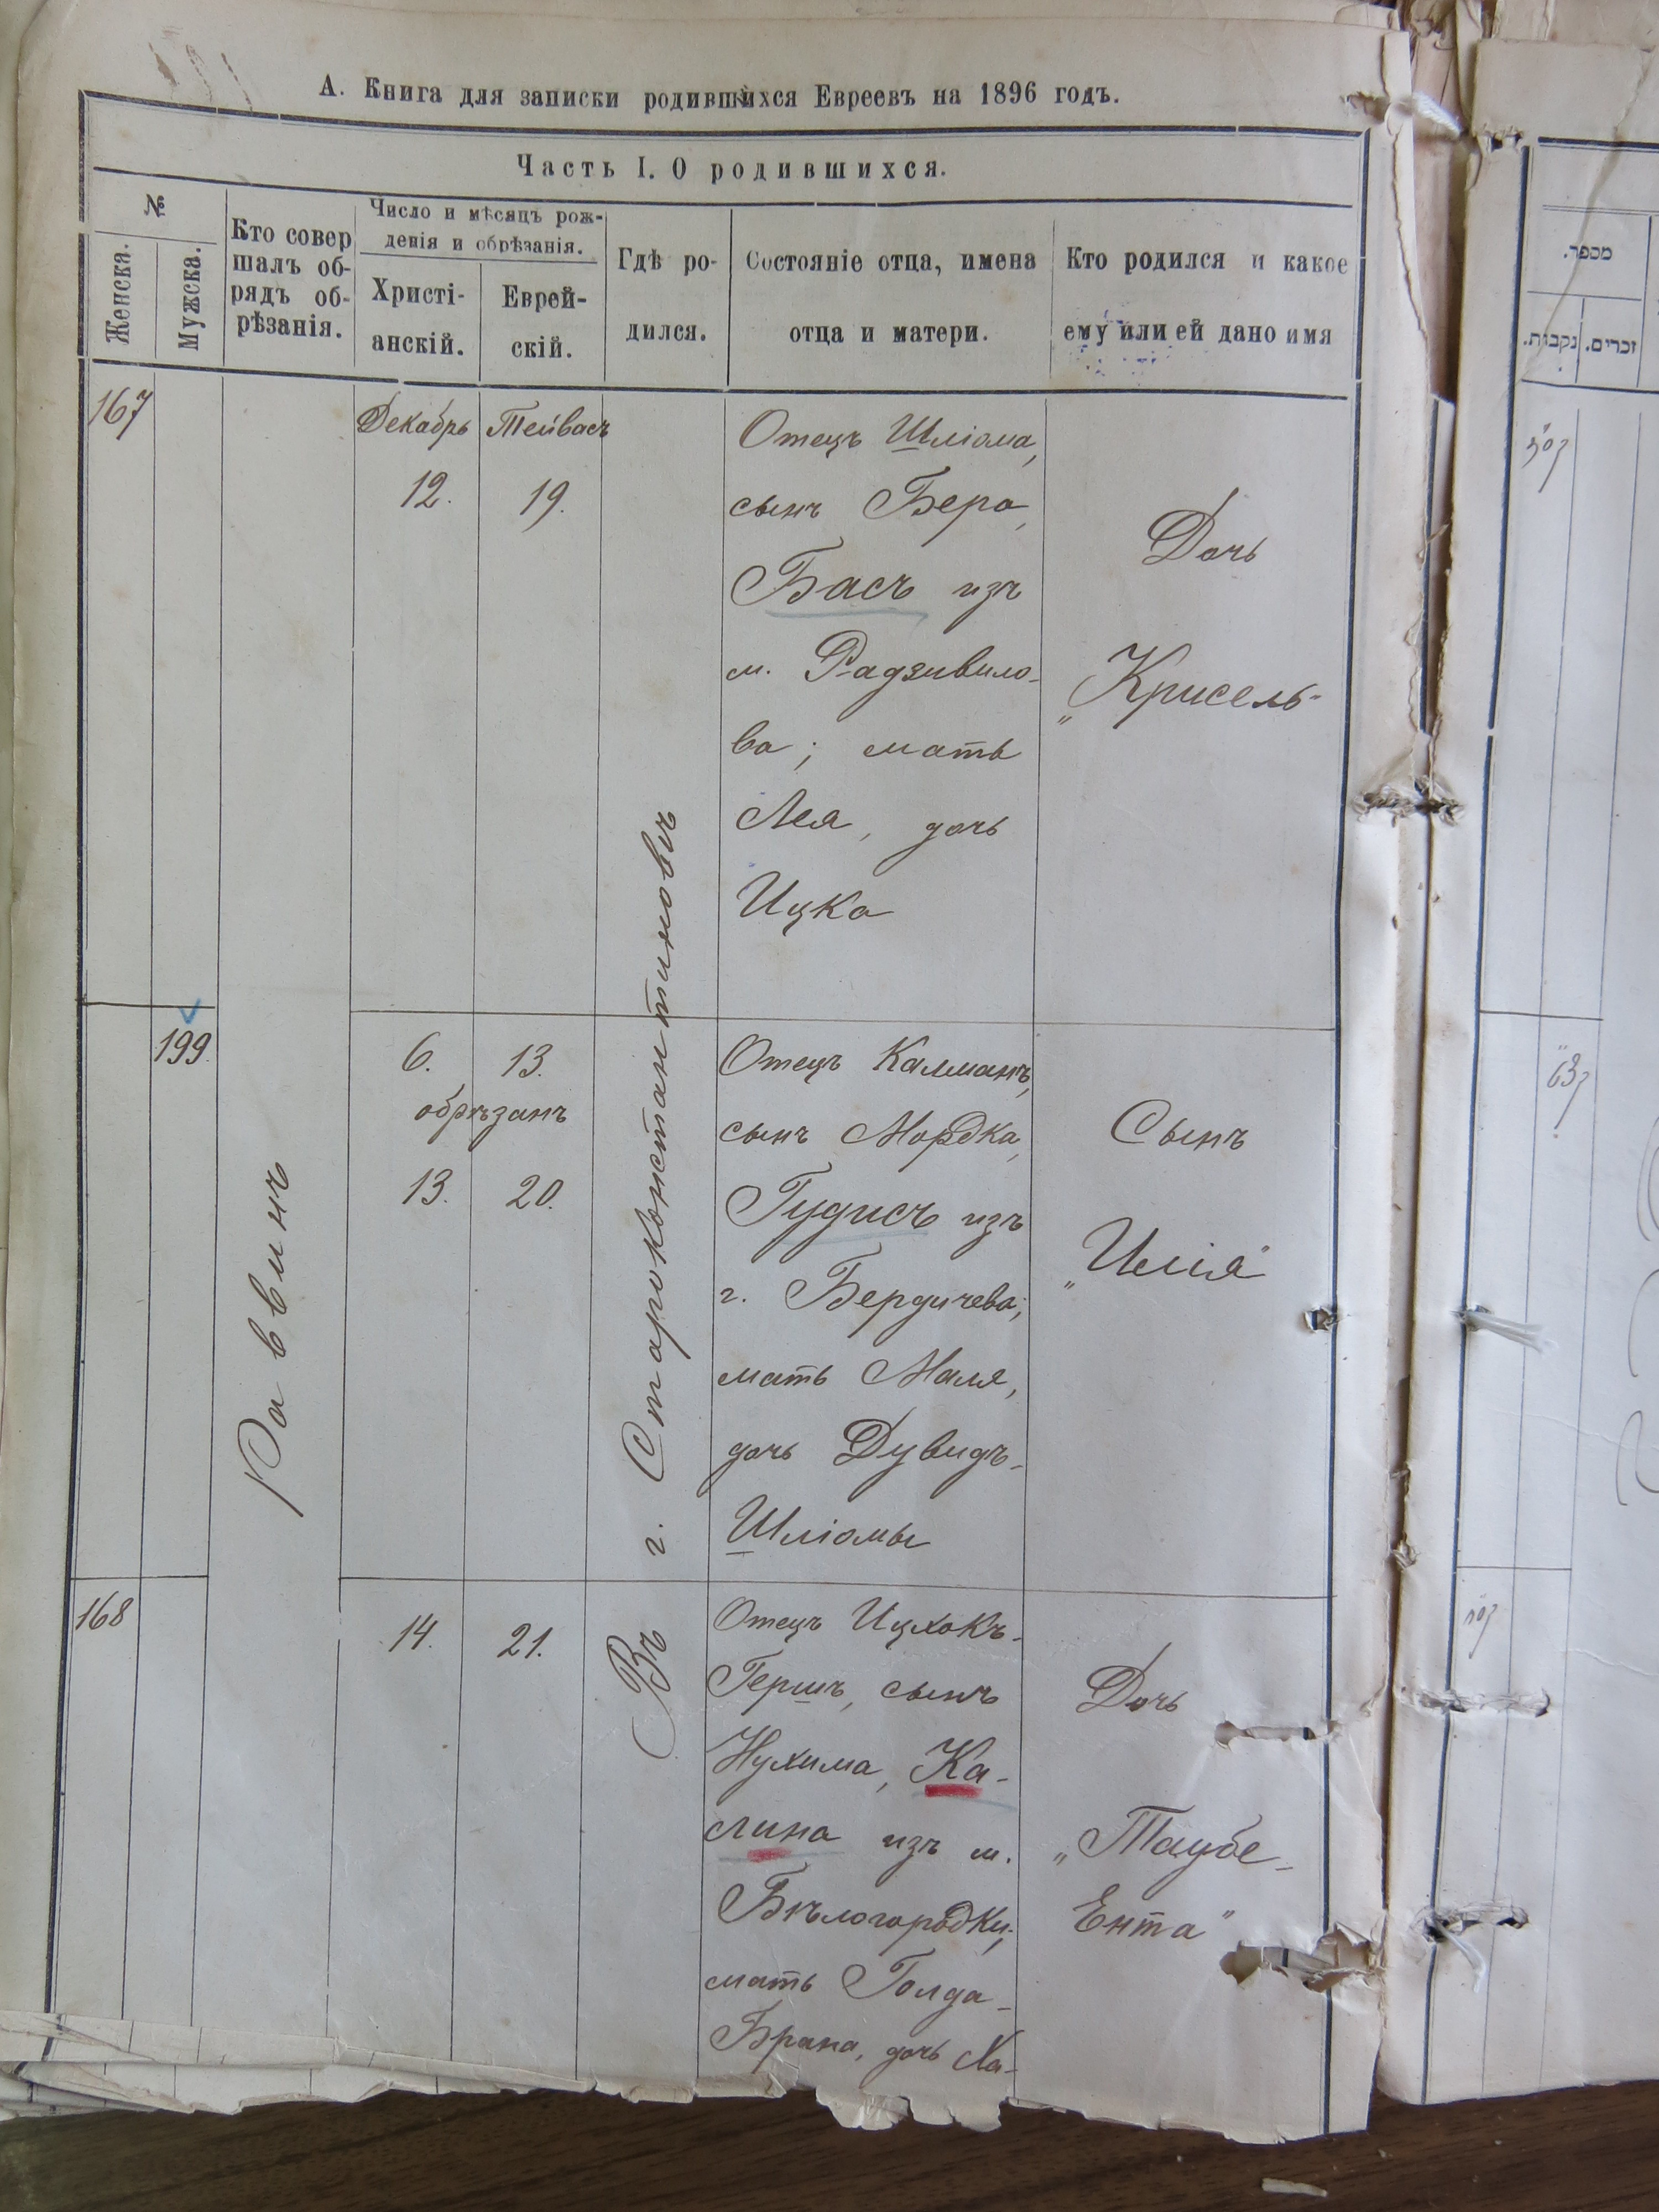 А. Книга для записки родившихся Евреевъ на 1896 годъ.
Часть I. О родившихся.
№
Женска.
Мужска.
Кто совер
шалъ об-
рядъ об-
рѣзанія.
Число и мѣсяцъ рож-
денія и обрѣзанія.
Христі-
анскій.
Еврей-
скій.
Гдѣ ро-
дился.
Состояніе отца, имена
отца и матери.
Кто родился и какое
ему или ей дано имя
167
Декабрь
12.
Тейвасъ
19.
Отецъ Шліома,
сынъ Бера,
Басъ изъ
м. Радзивило-
ва; мать
Лея, дочь
Ицка
Дочь
„Крисель"
199.
6.
13.
обрѣзанъ
13.
20.
Отецъ Калманъ,
сынъ Мордка,
Гудисъ изъ
г. Бердичева;
мать Маля,
дочь Дувидъ-
Шліомы
Сынъ
„Илія"
168
14.
21.
Отецъ Ицхокъ-
Гершъ, сынъ
Нухима, Ка-
лина изъ м.
Бѣлогородки;
мать Голда-
Брана, дочь Ха-
Дочь
„Таубе-
Ента"
Раввинъ
Въ г. Староконстантиновъ
מספר.
נקבות.
זכרים.